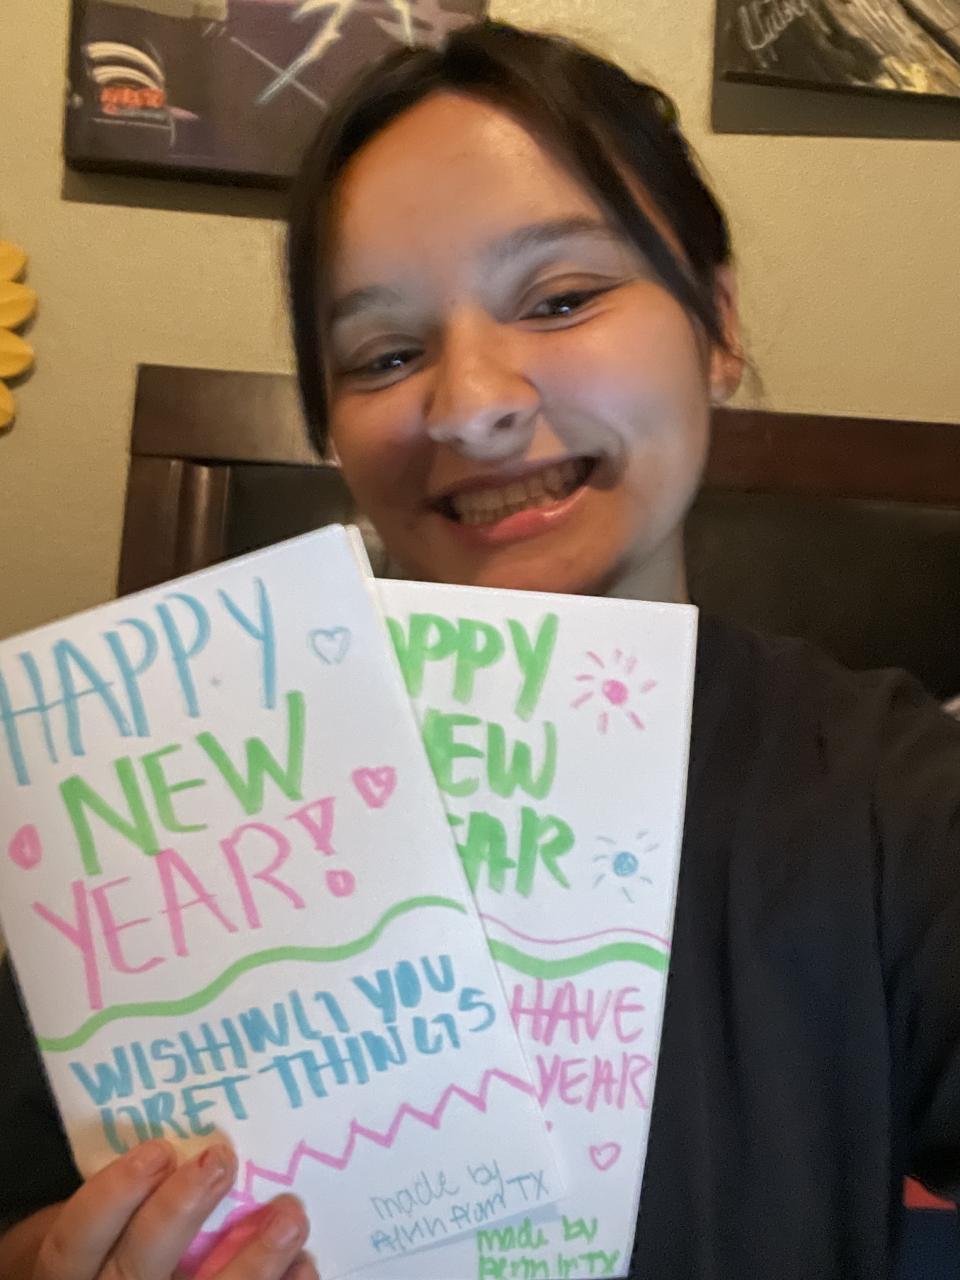 HAPPY
NEW
YEAR!
WISHING YOU
GRET THINGS
made by
from TX
APPY
EW
EAR
HAVE
YEAR
made by
TX